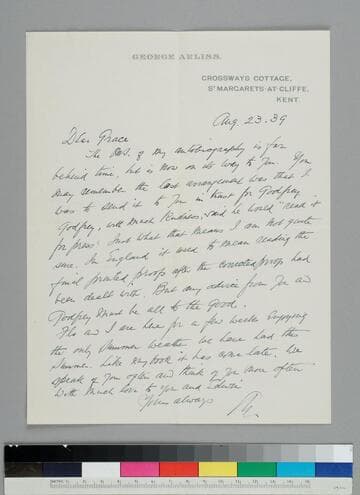 GEORGE ARLISS.
CROSSWAYS COTTAGE,
St MARGARETS-AT-CLIFFE,
KENT.
Aug. 23.39
Dear Grace
The MS. of my autobiography is far
behind time, but is now on its way to you. You
may remember the last arrangement was that I
was to send it to you in trust for Godfrey
Godfrey, with much kindness, said he would "read it
for press". Just what that means I am not quite
sure. In England it used to mean reading the
final printed proofs after the corrected proofs had
been dealt with. But any advice from you and
Godfrey must be all to the good.
Flo and I are here for a few weeks enjoying
the only summer weather we have had this
summer. Like my book it has come late. We
speak of you often and think of you more often
With much love to you and Edwin
Yours always